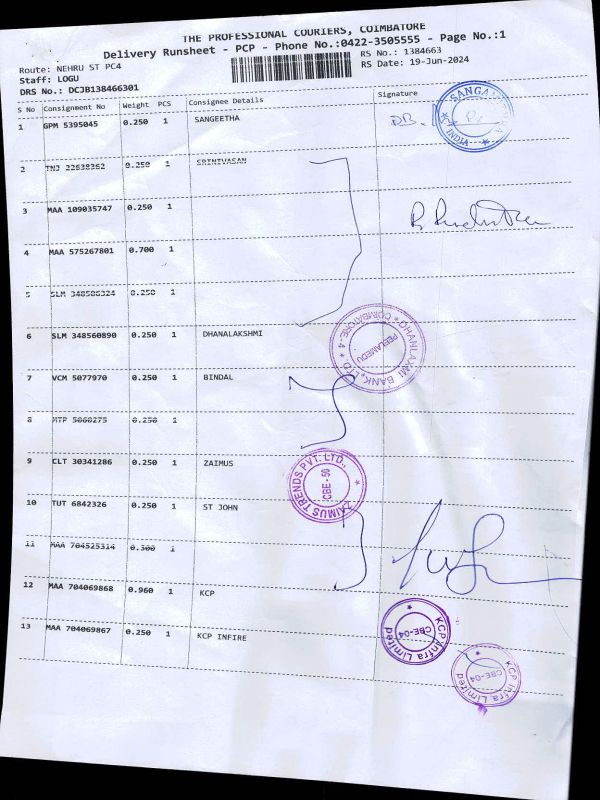 THE PROFESSIONAL COURIERS, COIMBATORE
Delivery Runsheet - PCP - Phone No.:0422-3505555 - Page No.:1
Route: NEHRU ST PC4 RS No.: 1384663
Staff: LOGU RS Date: 19-Jun-2024
DRS No.: DCJB138466301
S No Consignment No Weight PCS Consignee Details Signature
1 GPM 5395045 0.250 1 SANGEETHA
2 TNJ 22638362 0.250 1 SRINIVASAN
3 MAA 109035747 0.250 1
4 MAA 575267801 0.700 1
5 SLM 348586324 0.250 1
6 SLM 348560890 0.250 1 DHANALAKSHMI
DHANLAXMI BANK LTD. * COIMBATORE-4 *
PEELAMEDU
7 VCM 5077970 0.250 1 BINDAL
8 MTP 5060275 0.250 1
9 CLT 30341286 0.250 1 ZAIMUS
ZAIMUS TRENDS PVT. LTD., *
CBE-50
10 TUT 6842326 0.250 1 ST JOHN
11 MAA 704525314 0.300 1
12 MAA 704069868 0.960 1 KCP
KCP Infra Limited *
CBE-04
13 MAA 704069867 0.250 1 KCP INFIRE
KCP Infra Limited *
CBE-04